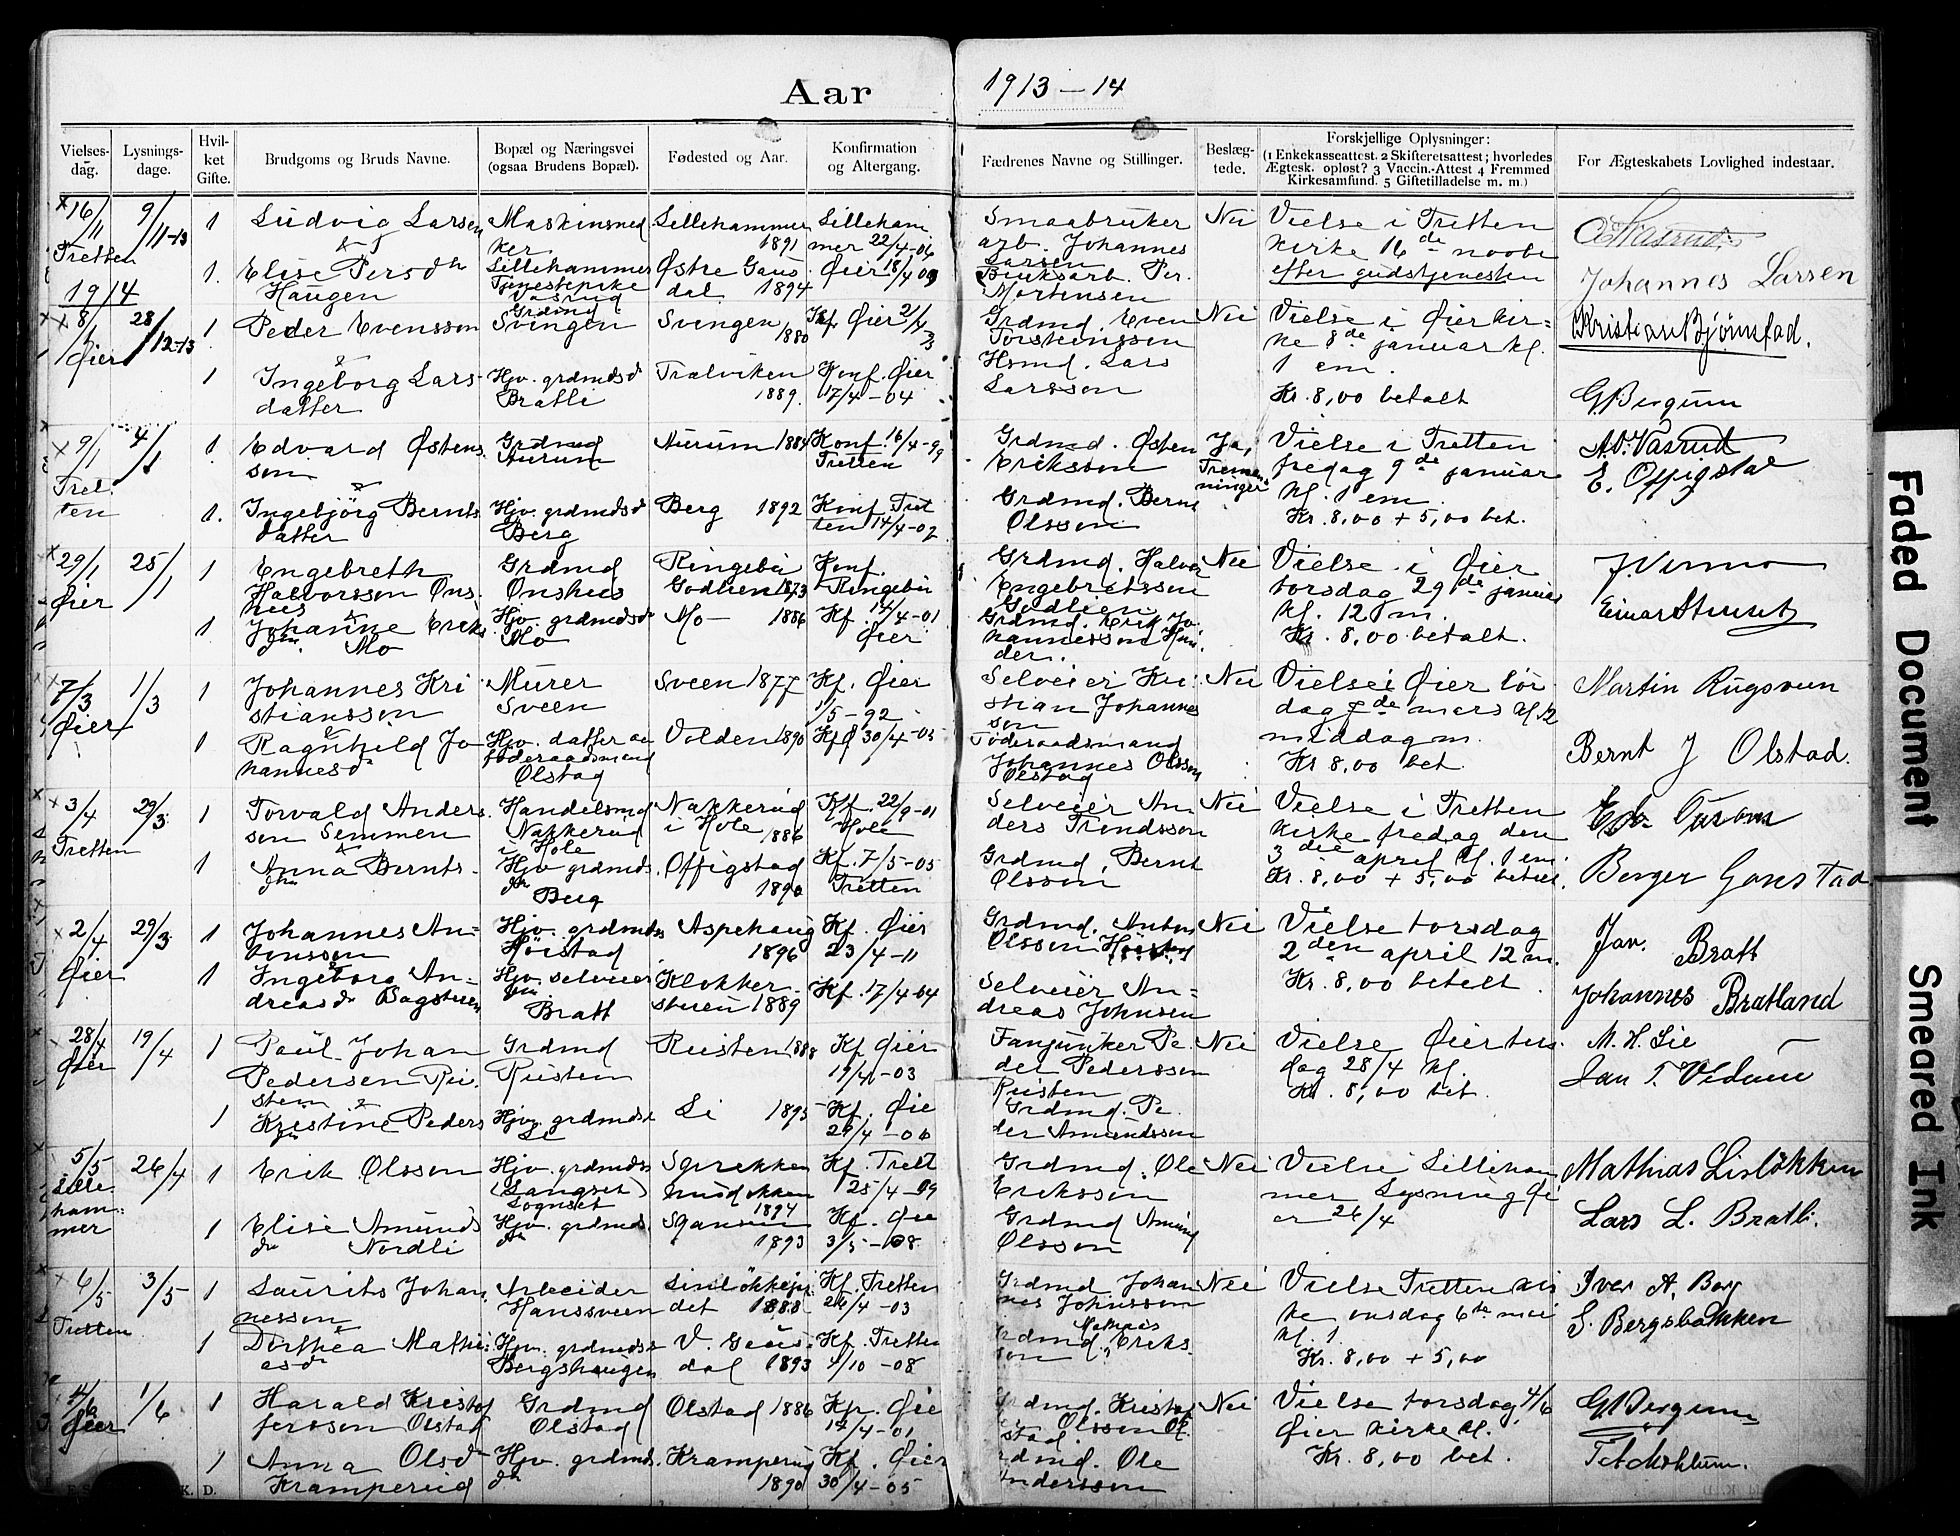 Aar 1913-14
Vielses-dag.
Lysnings-dage.
Hvil-ket Gifte.
Brudgoms og Bruds Navne.
Bopæl og Næringsvei (ogsaa Brudens Bopæl).
Fødested og Aar.
Konfirmation og Altergang.
Fædrenes Navne og Stillinger.
Beslæg-tede.
Forskjellige Oplysninger:
(1 Enkekasseattest. 2 Skifteretsattest; hvorledes Ægtesk. opløst? 3 Vaccin.-Attest 4 Fremmed Kirkesamfund. 5 Giftetilladelse m. m.)
For Ægteskabets Lovlighed indestaar.
16/11 Tretten 9/11-13 1 Ludvig Larsen Lillehammer 1891 Lillehammer 22/4-06 Smaabruker arb. Johannes Larsen Nei Vielse i Tretten kirke 16de novbr efter gudstjenesten
Johannes Larsen
1. Elise Persdtr Haugen Lillehammer Østre Gausdal 1894 Øier 18/4 09 Bruksarb. Per Mortensen
1914
8/1 Øier 28/12-13 1 Peder Evensson Grdmd Svingen Svingen 1880 Grdmd. Even Torsteinsson Nei Vielse i Øier kirke 8de januar kl. 1 em. Kr. 8,00 betalt
Kristian Bjørnstad.
1 Ingeborg Larsdatter Hjv. grdmdsd Bratli Trælviken 1889. Konf. Øier 17/4-04 Hsmd. Lars Larsson
G Bergum
9/1 Tretten 4/1 1 Edvard Østensson Grdmd Aurum Aurum 1884 Konf. 16/4-99 Tretten Grdmd. Østen Eriksson Ja, Tremenninger Vielse i Tretten fredag 9de januar kl. 1 em. Kr. 8,00 + 5,00 bet.
1. Ingebjörg Berntsdatter Hjv. grdmdsd Berg Berg 1892 Konf. Tretten 14/4-07 Grdmd. Bernt Olsson
29/1 Øier 25/1 1 Engebreth Halvorsson Onshus Grdmd Onshus Ringebu Godlien 1873 Konf. Ringebu Grdmd. Halvor Engebretsson Godlien Nei Vielse i Øier torsdag 29de januar kl. 12 m. Kr. 8,00 betalt.
1 Johanne Eriksdtr. Mo Hjv. grdmdsd Mo Mo 1886 Kf. 14/4-01 Øier Grdmd. Erik Johannesson
7/3 Øier 1/3 1 Johannes Kristiansson Murer Sveen Sveen 1877 Kf. Øier 1/5-92 Selveier Kristian Johannesson Nei Vielse i Øier lørdag 7de mars kl 12 middag m. Kr 8,00 bet.
Martin Rugsveen
1 Ragnhild Johannesdr Hjv. datter av föderaadsmand Olstad Volden 1890 Kf Ø 30/4-05 Föderaadsmand Johannes Olsson Olstad
Bernt J Olstad.
3/4 Tretten 29/3 1 Torvald Andersson Semmen Handelsmd Nakkerud i Hole Nakkerud i Hole 1886 Kf. 22/9-01 Hole Selveier Anders Trondsson Nei Vielse i Tretten kirke fredag den 3die april kl. 1 em. Kr. 8,00 + 5,00 betalt.
1 Anna Berntsdtr Hjv grdmdsdr Berg Offigstad 1890 Kf. 7/5-05 Tretten Grdmd. Bernt Olsson
Berger Gonstad
2/4 Øier 29/3 1 Johannes Antonsson Hjv. grdmdss Høistad Aspehaug 1896 Kf. Øier 23/4-11 Grdmd. Anton Olsson Høistad Nei Vielse torsdag 2den april 12 m. Kr. 8,00 betalt.
Jav. Bratt
1 Ingeborg Andreasdr Bagstuen Hjv. selveierdtr Bratt Klokkerstuen 1889 Kf. 17/4-04 Selveier Andreas Johnsen
Johannes Bratland
28/4 Øier 19/4 1 Paul Johan Pedersen Rusten Grdmd Rusten Rusten 1888 Kf. Øier 19/4-03 Fanejunker Peder Pedersson Rusten Nei Vielse Øier tirsdag 28/4 kl. Kr. 8,00 bet.
M. H. Lie
1 Kristine Pedersdtr Hjv. grdmdsd Li Li 1895 Kf. Øier 29/4-06 Grdmd. Peder Amundsson
5/5 Lillehammer 26/4 1 Erik Olsson Hjv. grdmdss (Langset) 1894 Kf. Trett 25/4-09 Grdmd. Ole Eriksson Nei Vielse Lillehammer Lysning Øier 26/4
Mathias Lisløkken
1 Elise Amundsdtr Nordli Hjv. grdmdsdr 1893 Kf. Øie 3/5-08 Grdmd Amund Olsson
Lars L. Bratli.
6/5 Tretten 3/5 1 Laurits Johannesson Arbeider Hanssveen 1888 Kf. Tretten 26/4-03 Grdmd. Johannes Johnsson Nei Vielse Tretten kirke onsdag 6te mai kl. 1. Kr. 8,00 + 5,00
Iver A. Berg
1 Dorthea Mathiasdr Hjv. grdmdsd Bergshaugen V. Gausdal 1893 Kf. Tretten 4/10-08 Grdmd. Mathias Eriksson
S. Bergsbakken
4/6 Øier 1/6 1 Harald Kristoffersson Olstad Grdmd Olstad Olstad 1886 Kf. Øie 14/4-01 Grdmd. Kristoffer Olsson Olstad Nei Vielse torsdag 4/6 Øier kirke kl. Kr. 8,00 bet.
G Bergum
1 Anna Olsdr Kramperud Hjv. grdmdsdr Kramperud 1890 Kf. Øier 30/4-05 Grdmd. Ole Andersson
Faded Document
Smeared Ink